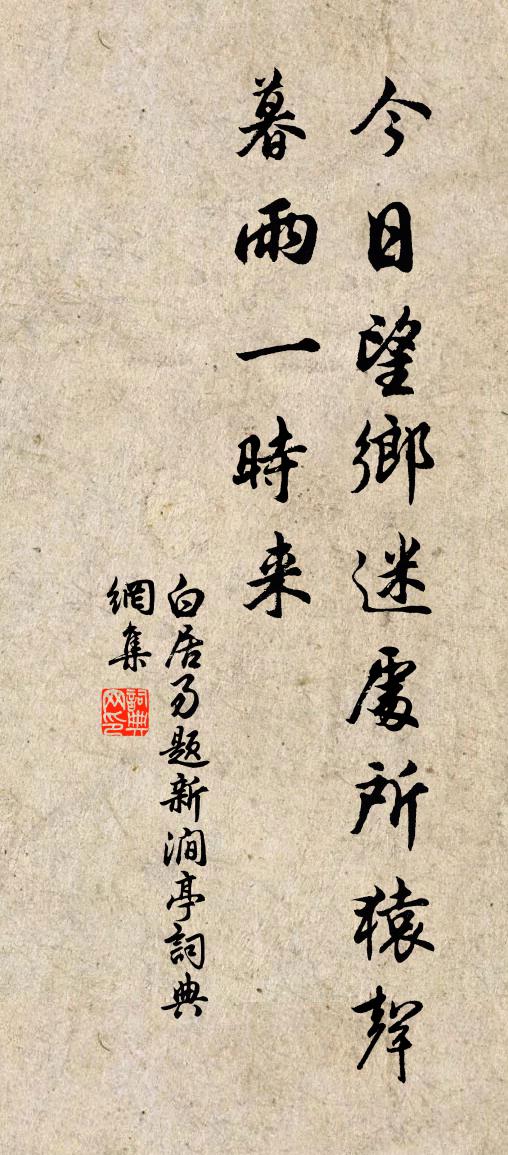 今日望鄉迷處所猿聲
暮雨一時来
白居易題新澗亭詞典
網集
詞典網印